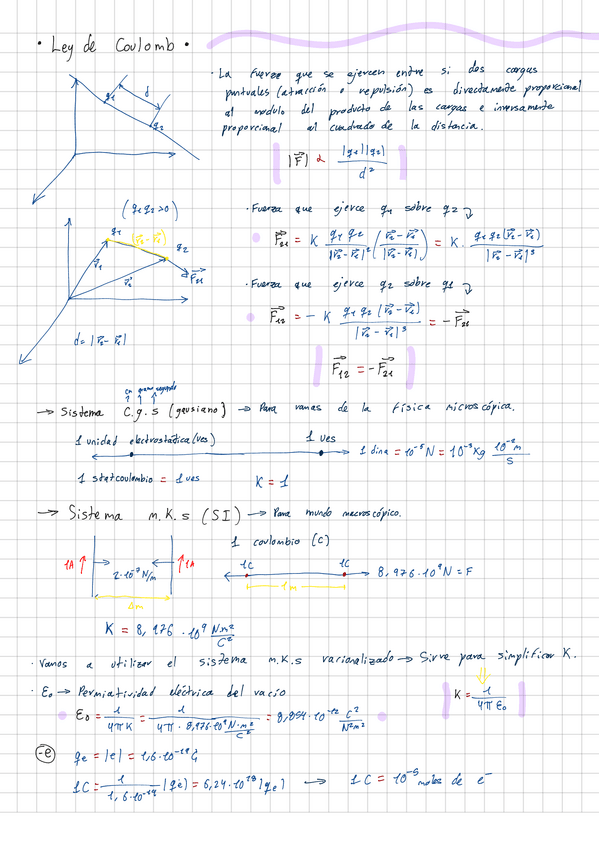 • Ley de Coulomb •
· La fuerza que se ejercen entre si dos cargas
puntuales (atracción o repulsión) es directamente proporcional
al modulo del producto de las cargas e inversamente
proporcional al cuadrado de la distancia.
q₁ d q₂
|F⃗| α |q₁||q₂| / d²
(q₁ q₂ >0)
q₁ (r⃗₂ - r⃗₁) q₂
r⃗₁ r⃗₂ F⃗₂₁
d = |r⃗₂ - r⃗₁|
· Fuerza que ejerce q₁ sobre q₂
F⃗₂₁ = K q₁ q₂ / |r⃗₂ - r⃗₁|² (r⃗₂ - r⃗₁ / |r⃗₂ - r⃗₁|) = K · q₁ q₂ (r⃗₂ - r⃗₁) / |r⃗₂ - r⃗₁|³
· Fuerza que ejerce q₂ sobre q₁
F⃗₁₂ = - K q₁ q₂ (r⃗₂ - r⃗₁) / |r⃗₂ - r⃗₁|³ = - F⃗₂₁
F⃗₁₂ = - F⃗₂₁
cm gramo segundo
→ Sistema C.g.s (gausiano) → Para ramas de la física microscópica.
1 unidad electrostática (ues) 1 ues
1 dina = 10⁻⁵ N = 10⁻³ Kg 10⁻² m / s
1 statcoulombio = 1 ues K = 1
→ Sistema m.K.s (SI) → Para mundo macroscópico.
1 coulombio (C)
1A ↑ 2·10⁻⁷ N/m ↑ 1A
1m
1C 1C
1m
8,976·10⁹ N = F
K = 8,976 ·10⁹ N·m² / C²
· Vamos a utilizar el sistema m.K.s racionalizado → Sirve para simplificar K.
· ε₀ → Permiatividad eléctrica del vacío
K = 1 / 4π ε₀
ε₀ = 1 / 4π K = 1 / 4π · 8,976·10⁹ N·m² / C² = 8,854·10⁻¹² C² / N²m²
-e qe = |e| = 1,6·10⁻¹⁹ C
1C = 1 / 1,6·10⁻¹⁹ |qe| = 6,24·10¹⁸ |qe| → 1C = 10⁻⁵ moles de e⁻